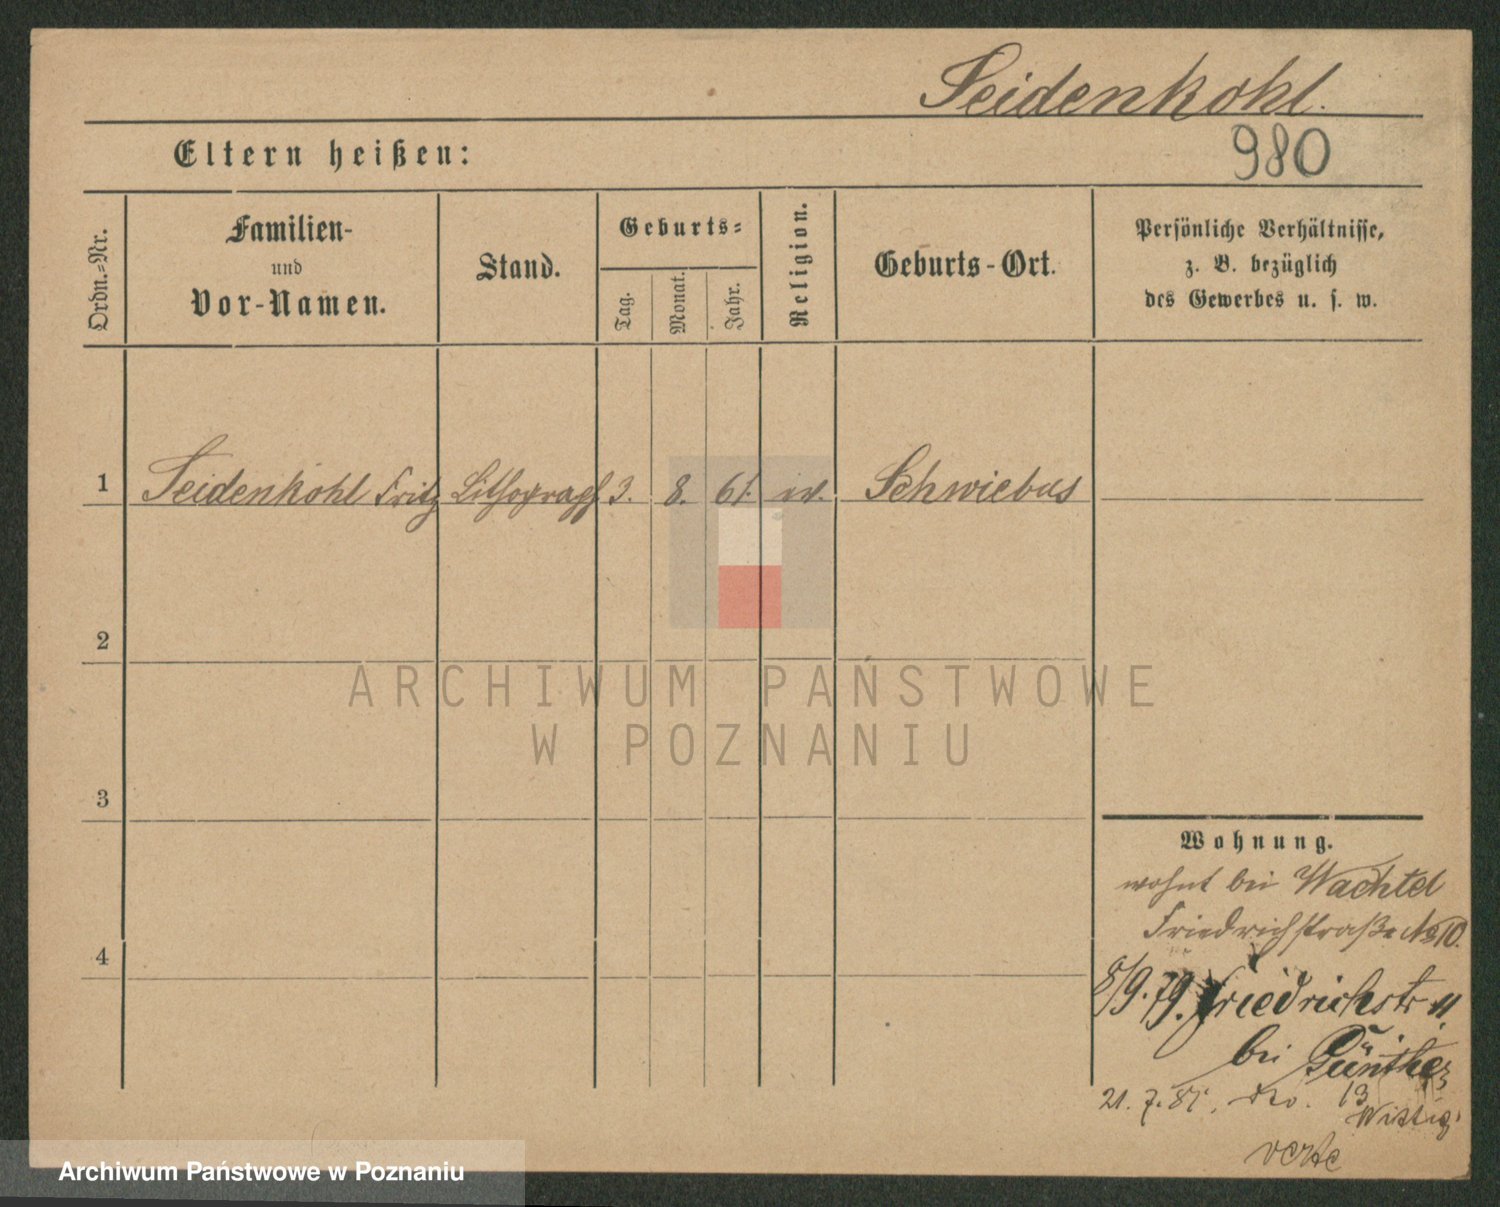 Seidenkohl.
980
Eltern heißen:
Ordn.=Nr.
Familien-
und
Vor-Namen.
Stand.
Geburts=
Tag.
Monat.
Jahr.
Religion.
Geburts-Ort.
Persönliche Verhältnisse,
z. B. bezüglich
des Gewerbes u. s. w.
1 Seidenkohl Fritz Lithograph 3. 8. 61. ev. Schwiebus
2
3
4
ARCHIWUM PAŃSTWOWE
W POZNANIU
Wohnung.
wohnt bei Wachtel
Friedrichstraße No 10.
8/9. 79. Friedrichstr 11
bei Günther
21. 7. 81. 13
Wittig
Archiwum Państwowe w Poznaniu